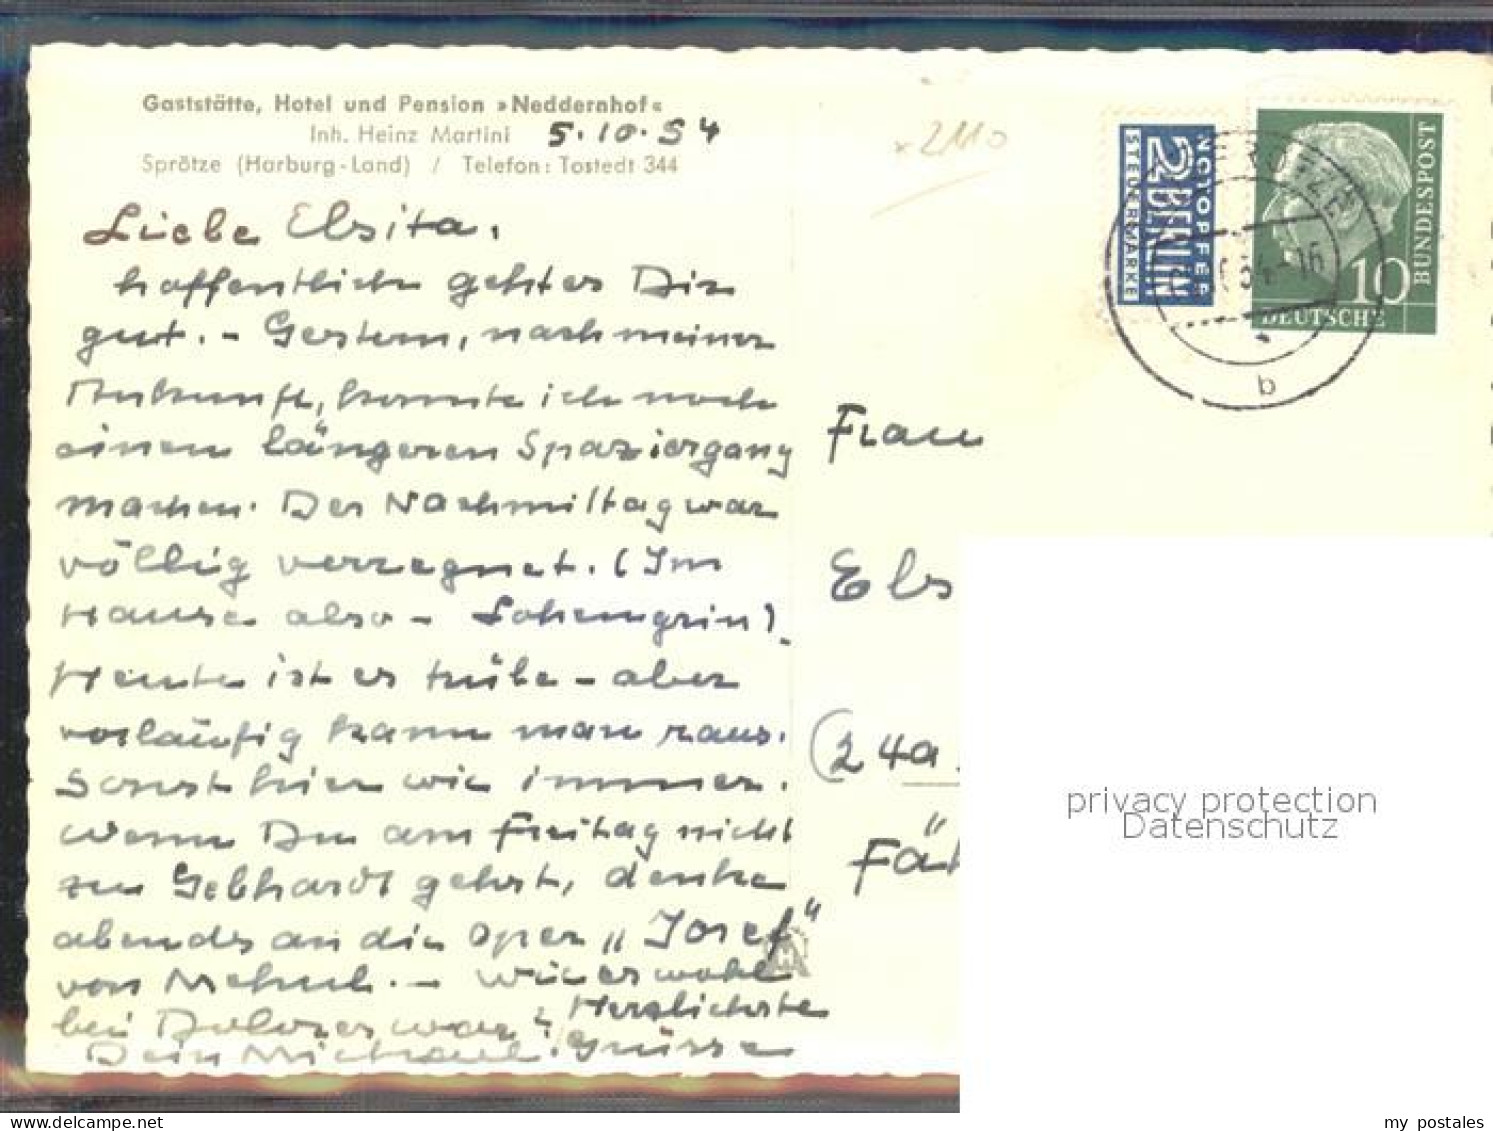 Gaststätte, Hotel und Pension »Neddernhof«
Inh. Heinz Martini 5.10.54
Sprötze (Harburg-Land) / Telefon: Tostedt 344
Liebe Elsita,
hoffentlich geht es Dir
gut. - Gestern, nach meiner
Ankunft, konnte ich noch
einen längeren Spaziergang
machen. Der Nachmittag war
völlig verregnet. (Im
Hause also - Lohengrin).
Heute ist es trübe - aber
vorläufig kann man raus.
Sonst hier wie immer.
Wenn Du am Freitag nicht
zu Gebhardt gehst, denke
abends an die Oper „Josef“
von Mehul. - Wie es wohl
bei Dolores war? Herzlichste
Dein Michael. Grüsse
×2110
NOTOPFER
2 BERLIN
STEUERMARKE
10
DEUTSCHE
BUNDESPOST
54-16
b
Frau
Els
(24a
Fäh
privacy protection
Datenschutz
my postales